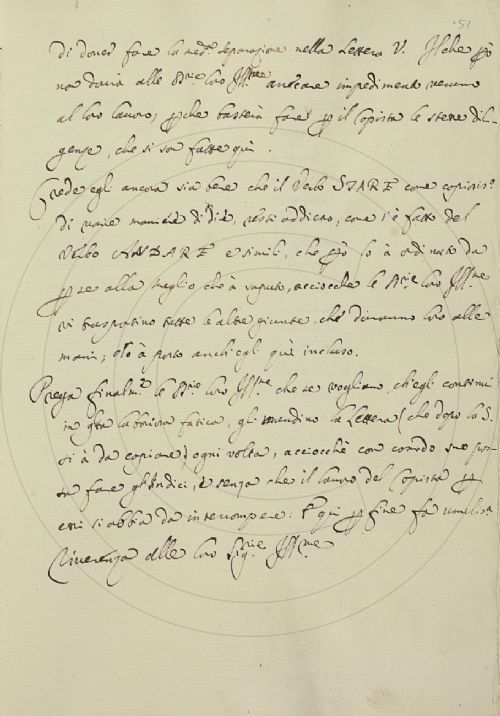 51
di dover fare la med.ª separazione nella Lettera V. Ilche p̄ò
non dovrà alle S.rie loro Ill.me arrecare impedimento veruno
al loro lavoro; p̄che basterà fare p̄ il Copista le stesse dili-
genze, che si son fatte quì.
Crede egli ancora sia bene che il Verbo STARE come copiosiss.º
di varie maniere di dire, resti addietro, come s'è fatto del
Verbo ANDARE e simili, che p̄ciò lo à ordinato da
p̄ se alla meglio che à saputo, acciocche le S.rie loro Ill.me
vi trasportino tutte le altre giunte, che daranno loro alle
mani; e lo à posto anch'egli quì incluso.
Prega finalm.te le S.rie loro Ill.me che se vogliano, ch'egli continui
in q̄sta laboriosa fatica, gli mandino la Lettera (che dopo la S.
si à da copiare) ogni volta, acciocchè con comodo suo pos-
sa fare gl'Indici, e senza che il lavoro del Copista p̄
essi si abbia da interrompere: E quì p̄ fine fa umiliss.ª
Riverenza alle loro Sig.rie Ill.me